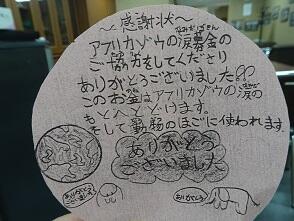 ～感謝状～
アフリカゾウの涙募金の
ご協力をしてくださり
ありがとうございました
このお金はアフリカゾウの涙の
もとへとどけます。
そして動物のほごに使われます。
ありがとう
ございました
ありがとう
ございました
ありがとう